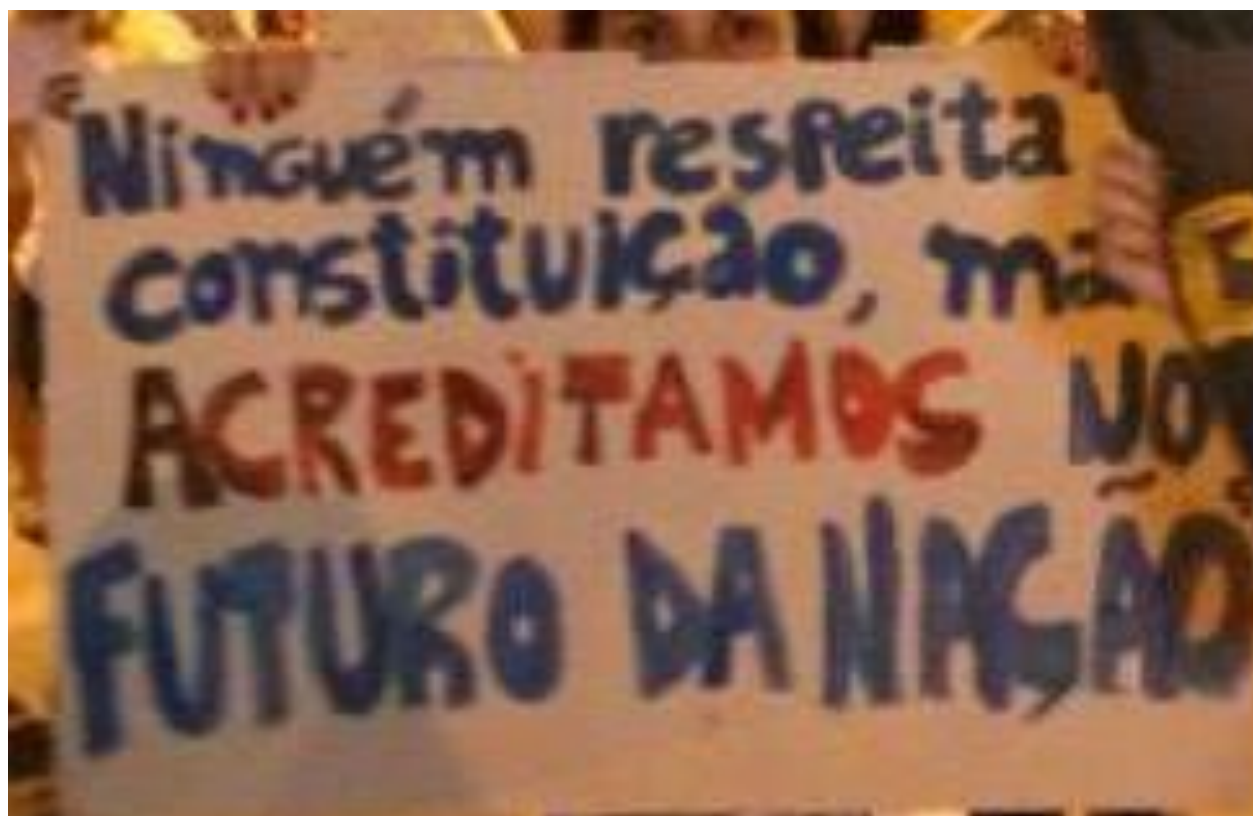 Ninguém respeita
constituição, ma
ACREDITAMOS NO
FUTURO DA NAÇÃO